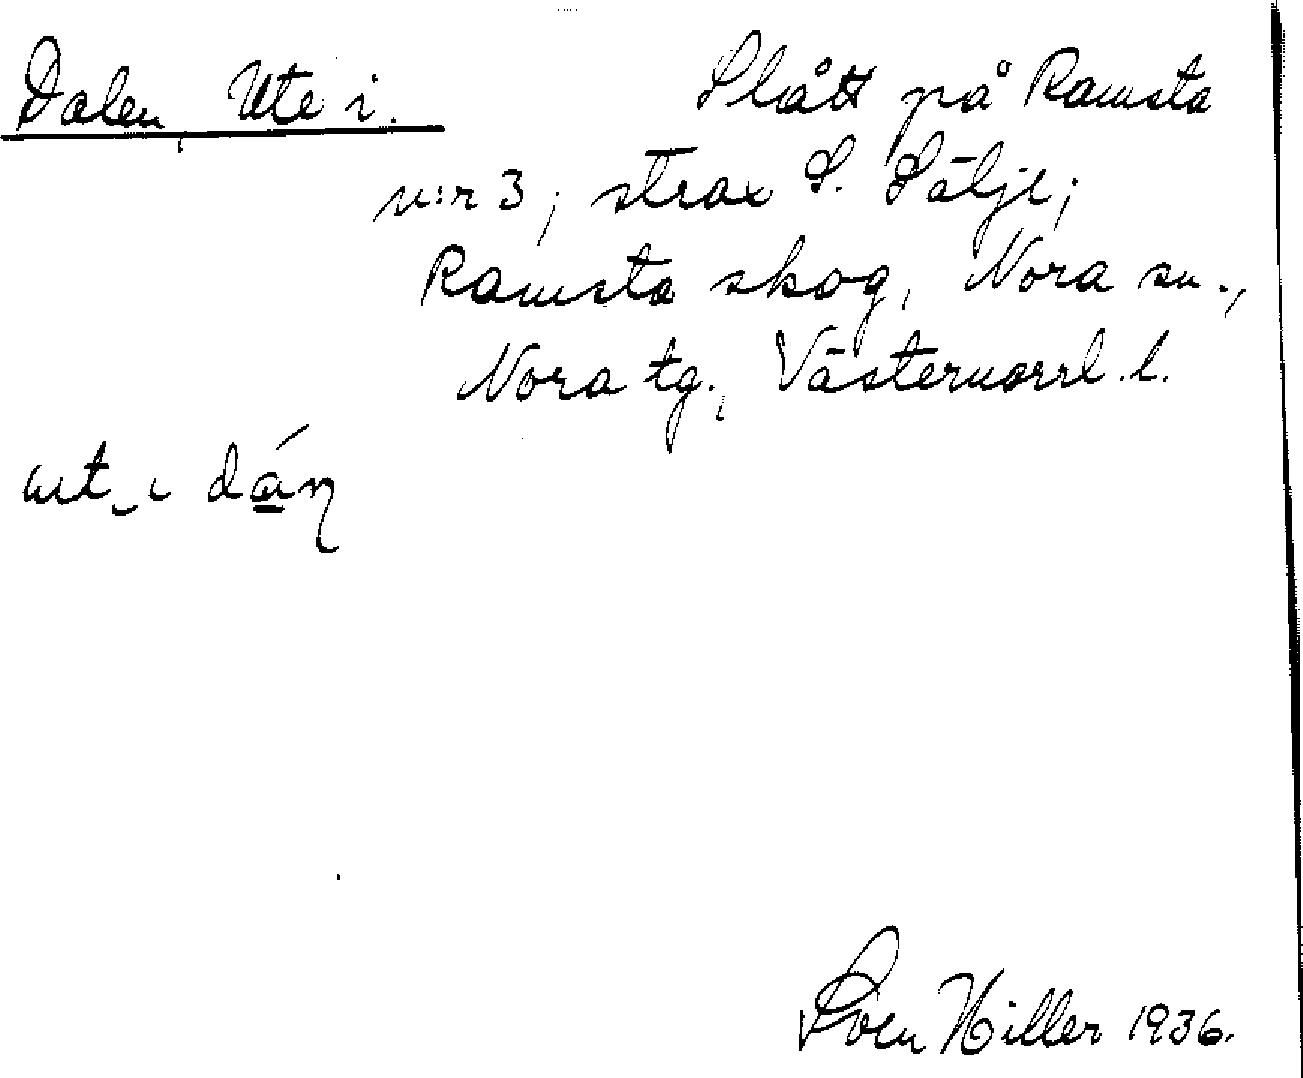 Dalen, Ute i. Slått på Ramsta
n:r 3; strax S. Sälje;
Ramsta skog, Nora sn.,
Nora tg., Västernorrl. l.
ut‿ı dáɳ
Sven Hiller 1936.